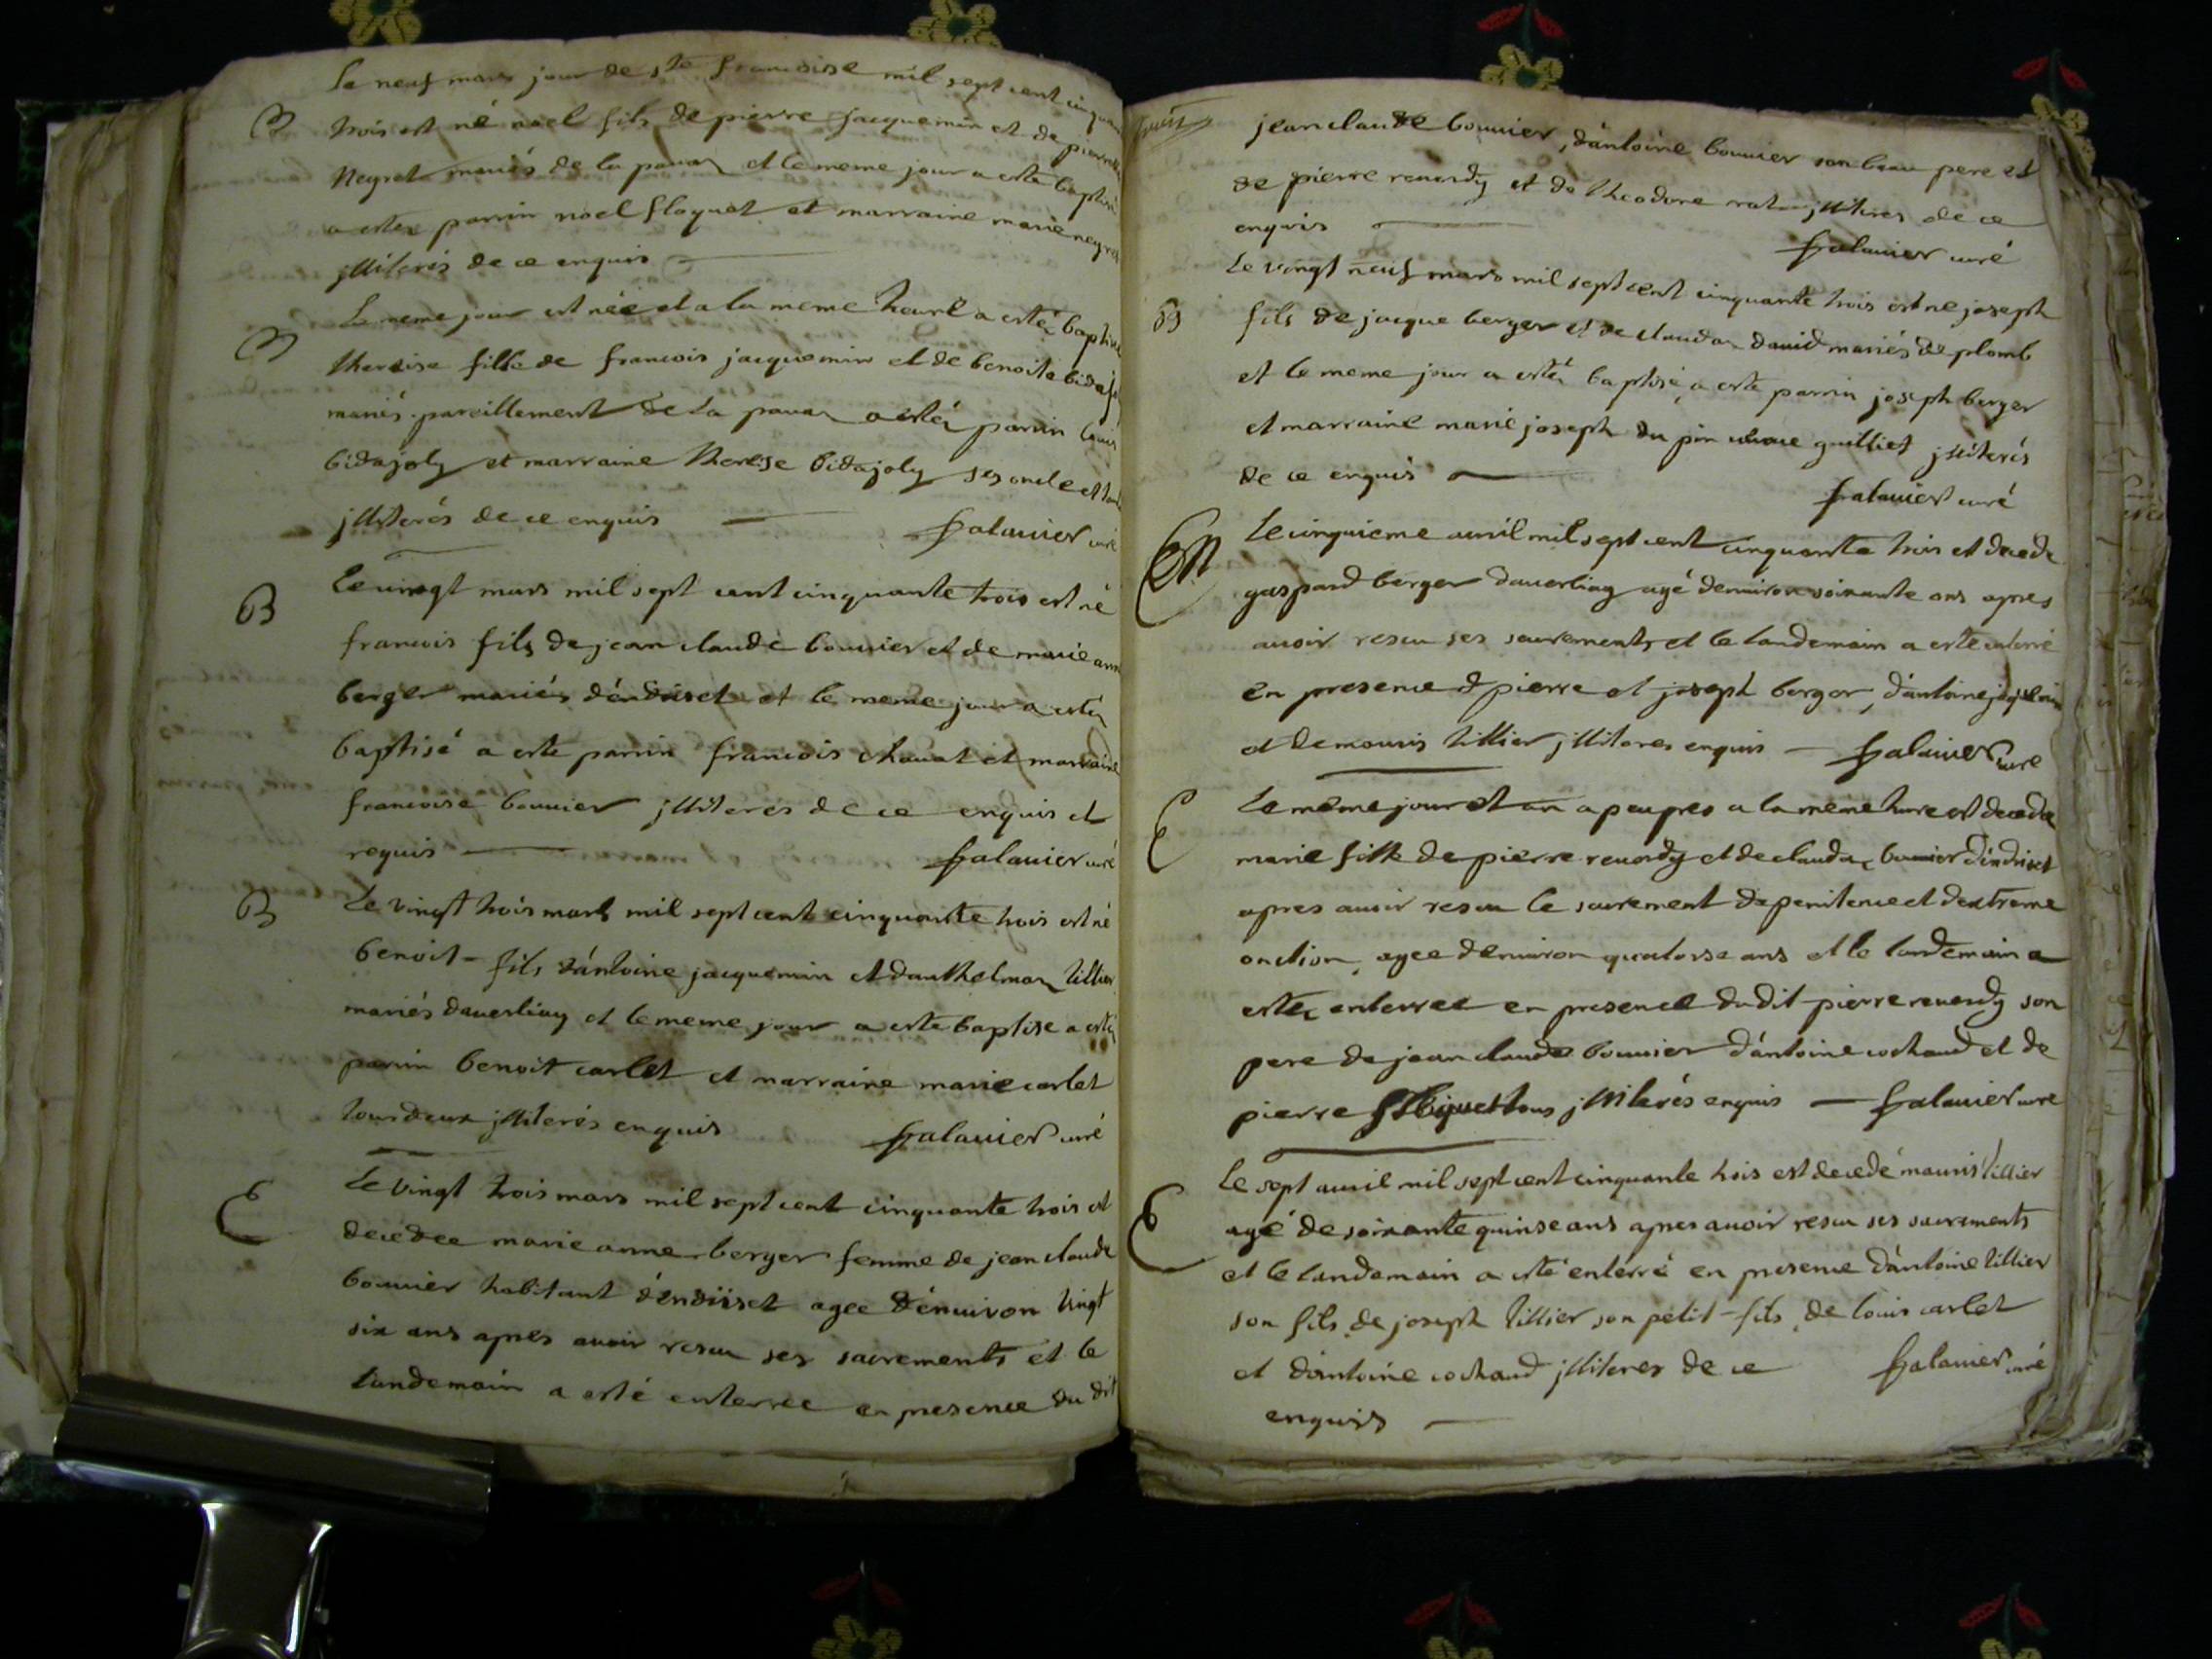 Le neuf mars jour de ste francoise mil sept cent cinquan
B trois est né noel fils de pierre jacquemin et de pierrette
Neyret mariés de la pavaz et le meme jour a esté baptisé
a estez parrin noel floquet et marraine marie neyret
jlliterés de ce enquis
Le meme jour est néé et a la meme heure a estéz baptisé
B therese fille de francois jacquemin et de benoite bidajoly
mariés pareillement de la pavaz a estéz parrin louis
bidajoly et marraine therese bidajoly ses oncle et tante
jlliterés de ce enquis falavier curé
B Le vingt mars mil sept cent cinquante trois est né
francois fils de jean claude bouvier et de marie anne
berger mariés d'endriset et le meme jour a estéz
baptisé a este parrin francois chavat et marraine
francoise bouvier jlliteres de ce enquis et
requis falavier curé
B Le vingt trois mars mil sept cent cinquante trois est né
benoit fils d'antoine jacquemin et d'anthelmaz tillier
mariés daverliaz et le meme jour a este baptise a estéz
parrin benoit carlet et marraine marie carlet
tous deux jlliterés enquis falavier curé
E Le vingt trois mars mil sept cent cinquante trois est
decedee marie anne berger femme de jean claude
bouvier habitant d'endriset agee d'enuiron vingt
six ans apres avoir rescu ses sacrements et le
landemain a esté enterree en presence du dit
jean claude bouvier, d'antoine bouvier son beau pere et
de pierre reverdy et de theodore rat jlliteres de ce
enquis falavier curé
Le vingt neuf mars mil sept cent cinquante trois est ne joseph
B fils de jacque berger et de claudaz david mariés de plomb
et le meme jour a estéz baptisé, a este parrin joseph berger
et marraine marie joseph du pin guilliet jlliterés
de ce enquis falavier curé
Le cinquieme avril mil sept cent cinquante trois et decede
gaspard berger daverliaz agé denviron soixante ans apres
avoir rescu ses sacrements et le landemain a este enterré
en presence d pierre et joseph berger, d'antoine
et de mouris tillier jlliteres enquis falavier curé
E Le même jour et an a peu pres a la meme hure est decedee
marie fille de pierre reverdy et de claudaz bouvier d'endriset
apres avoir rescu le sacrement de penitence et dextreme
onction, agee denviron quatorse ans et le landemain a
estéz enterree en presence du dit pierre reverdy son
pere de jean claude bouvier d'antoine cochaud et de
pierre tous jlliterés enquis falavier curé
Le sept avril mil sept cent cinquante trois est decedé mauris tillier
E agé de soixante quinse ans apres avoir rescu ses sacrements
et le landemain a esté enterré en presence d'antoine tillier
son fils, de joseph tillier son petit-fils, de louis carlet
et d'antoine cochaud jlliteres de ce falavier curé
enquis